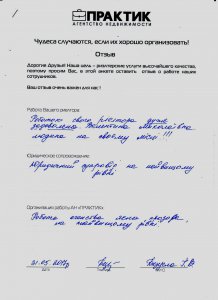 ПРАКТИК
АГЕНТСТВО НЕДВИЖИМОСТИ
Чудеса случаются, если их хорошо организовать!
Отзыв
Дорогие Друзья! Наша цель – риэлтерские услуги высочайшего качества,
поэтому просим Вас, в этой анкете оставить отзыв о работе наших
сотрудников.
Ваш отзыв очень важен для нас!
Работа Вашего риелтора:
Роботою свого ріелтора дуже
задоволена Валентина Миколаївна
людина на своєму місці!!!
Юридическое сопровождение:
Юридичний супровід на найвищому
рівні.
Организация работы АН «ПРАКТИК»:
Робота агенства
на найвищому рівні
31.05.2017р.
Дата